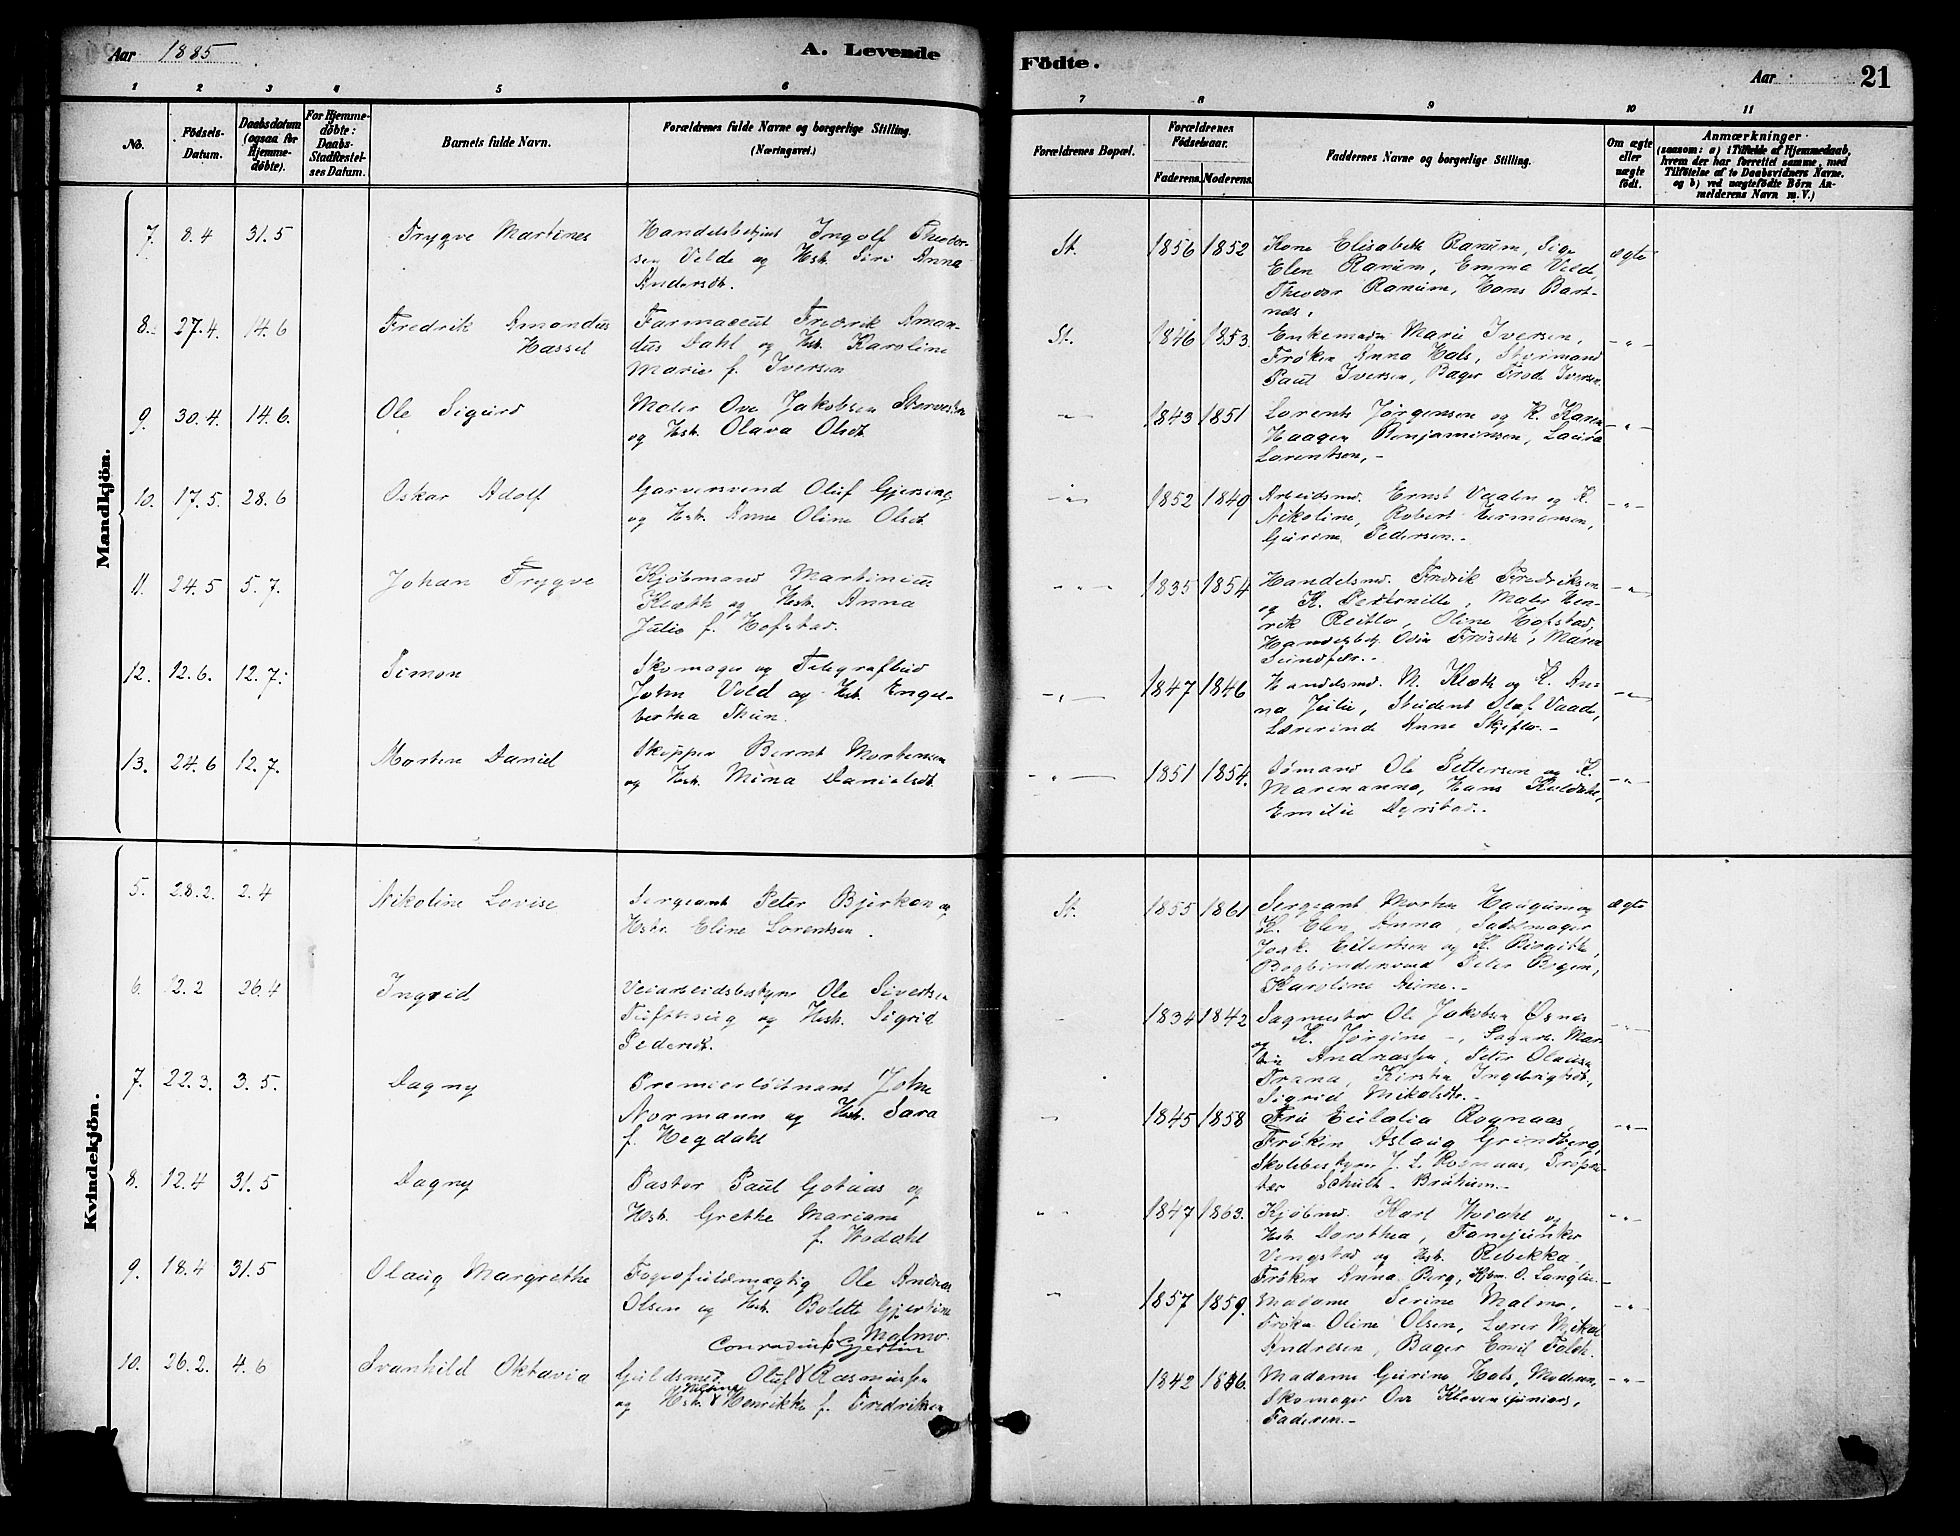 Aar 1885
A. Levende
Födte.
Aar
21
1 2 3 4 5 6 7 8 9 10 11
No.
Födsels-Datum.
Daabsdatum (ogsaa for Hjemmedöbte).
For Hjemmedöbte: Daabs-Stadfæstelses Datum.
Barnets fulde Navn.
Forældrenes fulde Navne og borgerlige Stilling. (Næringsvei.)
Forældrenes Bopæl.
Forældrenes Födselsaar.
Faderens. Moderens.
Faddernes Navne og borgerlige Stilling.
Om ægte eller uægte födt.
Anmærkninger
(saasom: a) i Tilfælde af Hjemmedaab, hvem der har forrettet samme, med Tilföielse af to Daabsvidners Navne, og b) ved uægtefödte Börn Anmelderens Navn m. V.)
Mandkjön.
7. 8.4 31.5 Trygve Martines
Handelsbetjent Ingolf Theodor-
sen Velde og Hst. Siri Anna
Andersdt.
St. 1856 1852
Kone Elisabeth Ranum, Pige
Elen Ranum, Emma Velde,
Theodor Ranum, Hans Bart-
næs,
ægte
8. 27.4. 14.6 Fredrik Amandus
Hassel
Farmaceut Fredrik Aman-
dus Dahl og Hst. Karoline
Marie f. Iversen
St. 1846 1853.
Enkemadm Marie Iversen,
Frøken Anna Hals, Styrmand
Paul Iversen, Bager Fred. Iversen
-"-
9. 30.4. 14.6. Ole Sigurd
Maler Ove Jakobsen
og Hst. Olava Olsdt.
-"- 1843 1851
Lorents Jørgensen og K. Karen,
Haagen Benjaminsen, Laura
Lorentsen,-
-"-
10. 17.5. 28.6 Oskar Adolf
Garversvend Oluf Gjersing
og Hst. Anne Oline Olsdt.
-"- 1852 1849
Arbeidsmd. Ernst Vaalen og K.
Nikoline, Robert Hermansen,
Gurine Pedersen.-
-"-
11. 24.5 5.7. Johan Trygve
Kjøbmand Martinius
Klæth og Hst. Anna
Julie f. Hofstad.
-"- 1835 1854
Handelsmd. Fredrik Fredriksen
og K. Petternille, Maler Hen-
rik Reitlo, Oline Hofstad,
Handelsbetj. Odin Frøseth, Maren
-"-
12. 12.6. 12.7. Simon
Skomager og Telegrafbud
John Vold og Hst. Engel-
bertha Thun.
-"- 1847 1846
Handelsmd. M. Klæth og K. An-
na Julie, Student Olaf Vaade,
Lærerinde Anne Skjeflo.-
-"-
13. 24.6 12.7. Morten Daniel
Skipper Bernt Mortensen
og Hst. Mina Danielsdt.
-"- 1851 1854.
Sømand Ole Pettersen og K.
Marenanna, Hans
Emilie Dyrstad.-
-"-
Kvindekjön.
5. 28.2. 2.4 Nikoline Lovise
Sergeant Peter Bjerkan og
Hstr. Eline Lorentsen.
St. 1855 1861
Sergeant Morten Haugum og
K. Elen Anna, Sadelmager
Joak. Eilertsen og K. Birgitte,
Bogbindersvend Peter Bogen,
Karoline Aune.-
ægte
6. 12.2 26.4 Ingrid
Veiarbeidsbestyrer Ole Sivertsen
Tufthaug og Hstr. Sigrid
Pedersdt.
1834 1842
Sagmester Ole Jakobsen Øsnes
og K. Jørgine -, Sagarb. Mar-
tin Andreassen, Peter Olausen
Trana, Kirsten Ingebrigtsdt.,
Sigrid Mikalsdt.-
-"-
7. 22.3. 3.5. Dagny
Premierløitnant John
Normann og Hst. Sara
f. Hegdahl
-"- 1845 1858
Fru Eulalia Rognaas,
Frøken Aslaug Grindberg,
Skolebestyrer J. L. Rognaas, Propri-
tær Schult - Bruhum.-
-"-
8. 12.4 31.5 Dagny
Pastor Paul Gotaas og
Hst. Grethe Mariane
f. Wodahl
-"- 1847 1863.
Kjøbmd. Karl Wodahl og
Hst. Dorothea, Fanejunker
Vengstad og Hst. Rebekka,
Frøken Anna Berg, Kjbm. O. Langlie.-
-"-
9. 18.4 31.5 Olaug Margrethe
Fogedfuldmægtig Ole Andreas
Olsen og Hst. Bolette Gjertine
f. Malmo.
-"- 1857 1859.
Madame Serine Malmo,
Frøken Oline Olsen, Lærer Mikal
Andresen, Bager Emil Falch.
-"-
10. 26.2. 4.6 Svanhild Oktavia
Conradinus Gjertin
Guldsmed Oluf Rasmussen
og Hst. Henrikke f. Fredriksen
1842 1846.
Madame Gurine Hals, Moderen,
Skomager Ove Kleven (junior),
Faderen.-
-"-